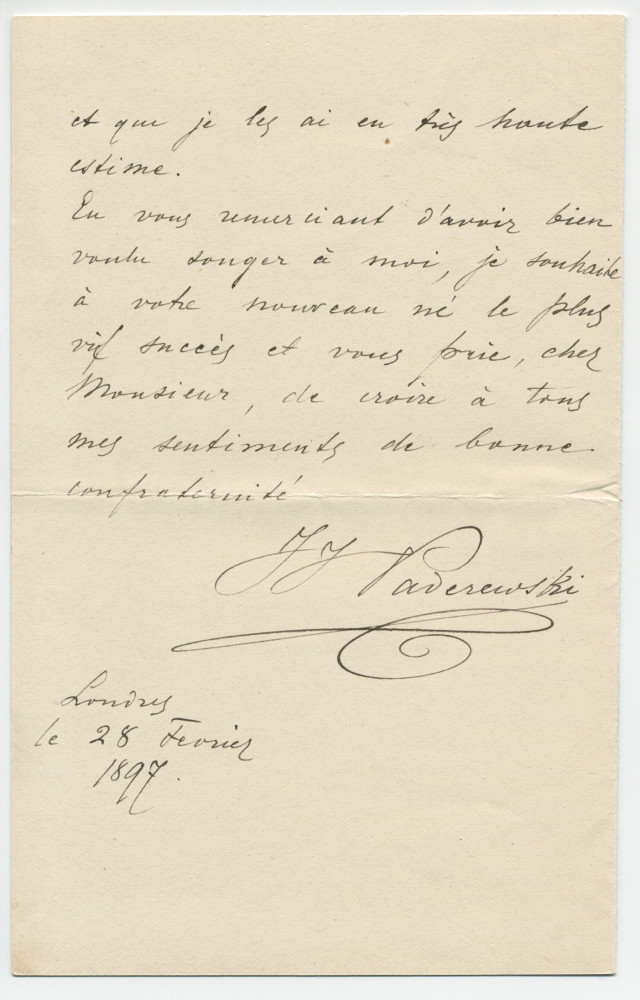 et que je les ai en très haute
estime.
En vous remerciant d'avoir bien
voulu songer à moi, je souhaite
à votre nouveau né le plus
vif succès et vous prie, cher
Monsieur, de croire à tous
mes sentiments de bonne
confraternité
I J Paderewski
Londres
le 28 Fevrier
1897.